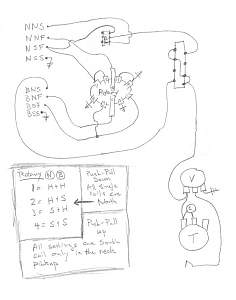 NNS
NNF
NSF
NSS
BNS
BNF
BSF
BSS
Rotary
V
C
T
Rotary N B
1= H+H
2= H+S
3= S+H
4= S+S
Push-Pull
Down
All Single
Coils are
North
Push-Pull
up
All settings are South
coil only in the neck
pickup